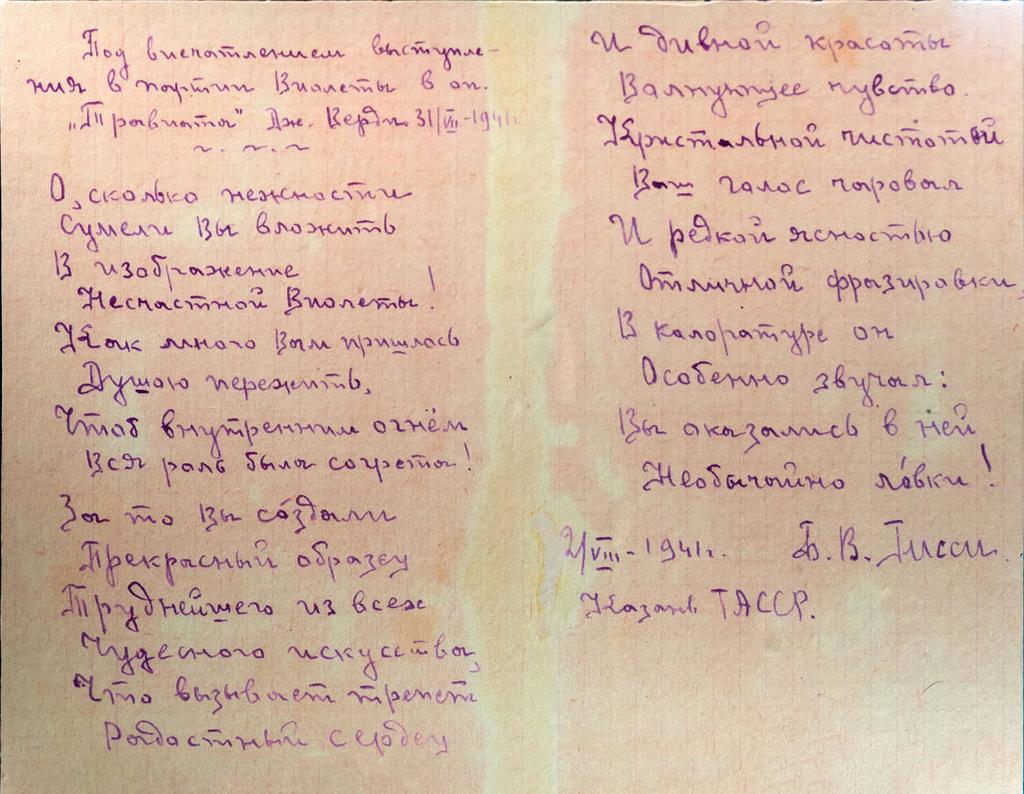 Под впечатлением выступле-
ния в партии Виолеты в оп.
„Травиата" Дж. Верди 31/VII-1941г.
~ . ~ . ~
О, сколько нежности
Сумели Вы вложить
В изображение
Несчастной Виолеты!
Как много Вам пришлось
Душою пережить,
Чтоб внутренним огнём
Вся роль была согрета!
За то Вы создали
Прекрасный образец
Труднейшего из всех
Чудесного искусства,
Что вызывает трепет
Радостный сердец
И дивной красоты
Валнующее чувство.
Кристальной чистотой
Ваш голос чаровал
И редкой ясностью
Отличной фразировки,
В калоратуре он
Особенно звучал:
Вы оказались в ней
Необычайно ло́вки!
2/VIII-1941г. Б. В. Гисси.
Казань ТАССР.